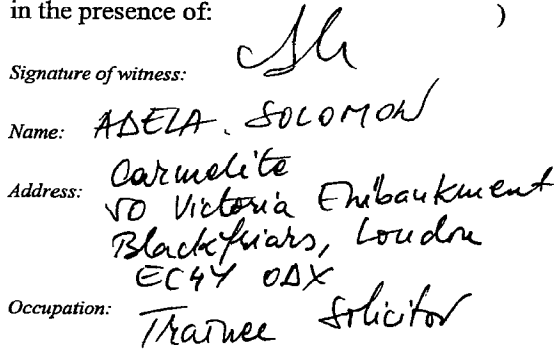 in the presence of: )
Signature of witness:
Name: ADELA. SOLOMON
Carmelite
Address: 50 Victoria Embankment
Blackfriars, London
EC4Y 0DX
Occupation: Trainee Solicitor